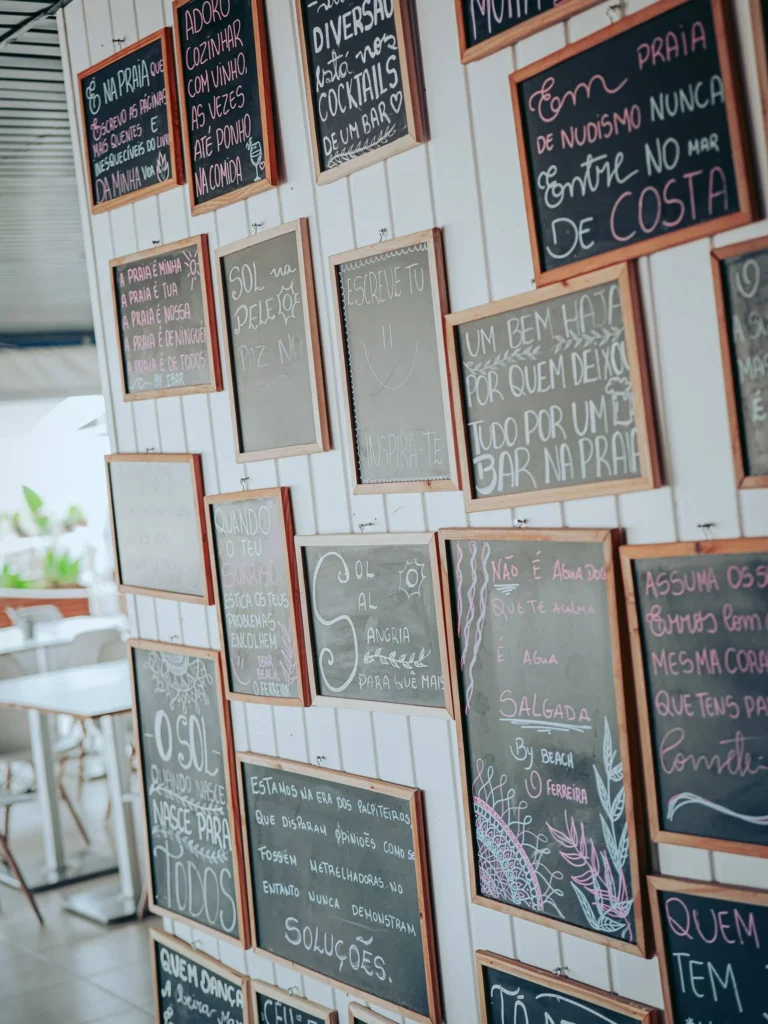 É NA PRAIA QUE
ESCREVO AS PÁGINAS
MAIS QUENTES E
INESQUECÍVEIS DO LIVRO
DA MINHA VIDA
ADORO
COZINHAR
COM VINHO,
ÀS VEZES
ATÉ PONHO
NA COMIDA
DIVERSÃO
está nos
COCKTAILS
DE UM BAR
Em PRAIA
DE NUDISMO NUNCA
Entre NO MAR
DE COSTA
A PRAIA É MINHA
A PRAIA É TUA
A PRAIA É NOSSA
A PRAIA É DE NINGUÉM
A PRAIA É DE TODOS
BY IBAR
SOL na
PELE
PAZ NO
ESCREVE TU
INSPIRA-TE
UM BEM HAJA
POR QUEM DEIXOU
TUDO POR UM
BAR NA PRAIA
QUANDO
O TEU
SORRISO
ESTICA OS TEUS
PROBLEMAS
ENCOLHEM
IBAR
BEACH
O FERREIRA
SOL
AL
SANGRIA
PARA QUÊ MAIS
NÃO É ÁGUA DOCE
QUE TE ACALMA
É ÁGUA
SALGADA
By BEACH
O FERREIRA
ASSUMA OS S
Erros com a
MESMA CORA
QUE TENS PA
O SOL
QUANDO NASCE
NASCE PARA
TODOS
ESTAMOS NA ERA DOS PALPITEIROS
QUE DISPARAM OPINIÕES COMO SE
FOSSEM METRELHADORAS. NO
ENTANTO NUNCA DEMONSTRAM
SOLUÇÕES.
QUEM DANÇA
À Beira Mar
QUEM
TEM